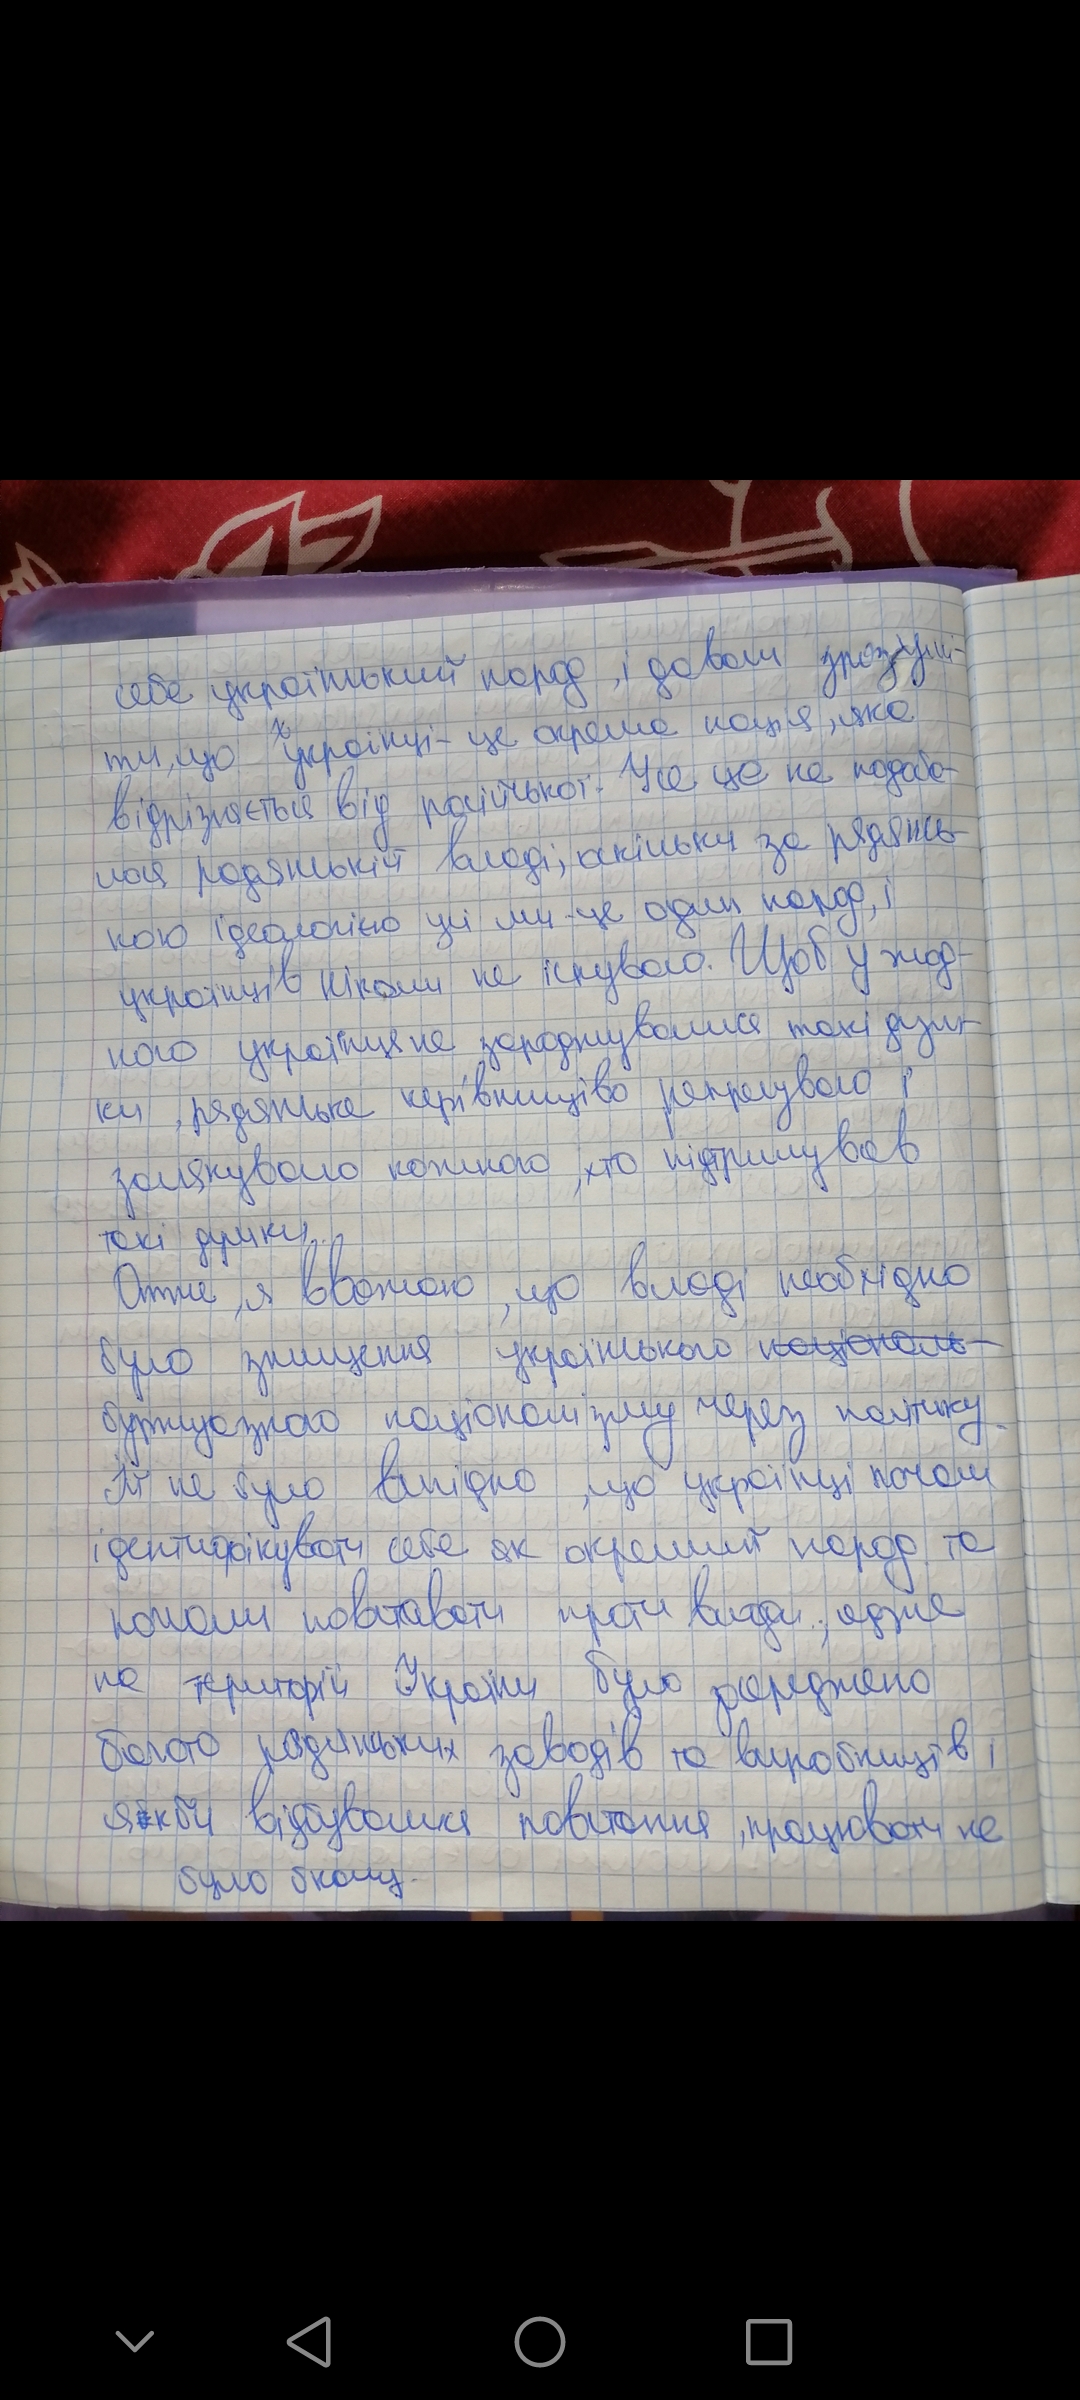 себе український народ, і давали зрозумі-
ти, що українці - це окрема нація, яка
відрізняється від російської. Усе це не подоба-
лося радянській владі, оскільки за радянсь-
кою ідеологією усі ми - це один народ, і
українців ніколи не існувало. Щоб у жод-
ного українця не зароджувалися такі дум-
ки, радянське керівництво репресувало і
залякувало кожного, хто підтримував
такі думки.
Отже, я вважаю, що владі необхідно
було знищення українського національ-
буржуазного націоналізму через політику.
Їй не було вигідно, що українці почали
ідентифікувати себе як окремий народ та
почали повставати проти влади, адже
на території України було зосереджено
багато радянських заводів та виробництв і
якби відбувалися повстання, працювати не
було б кому.